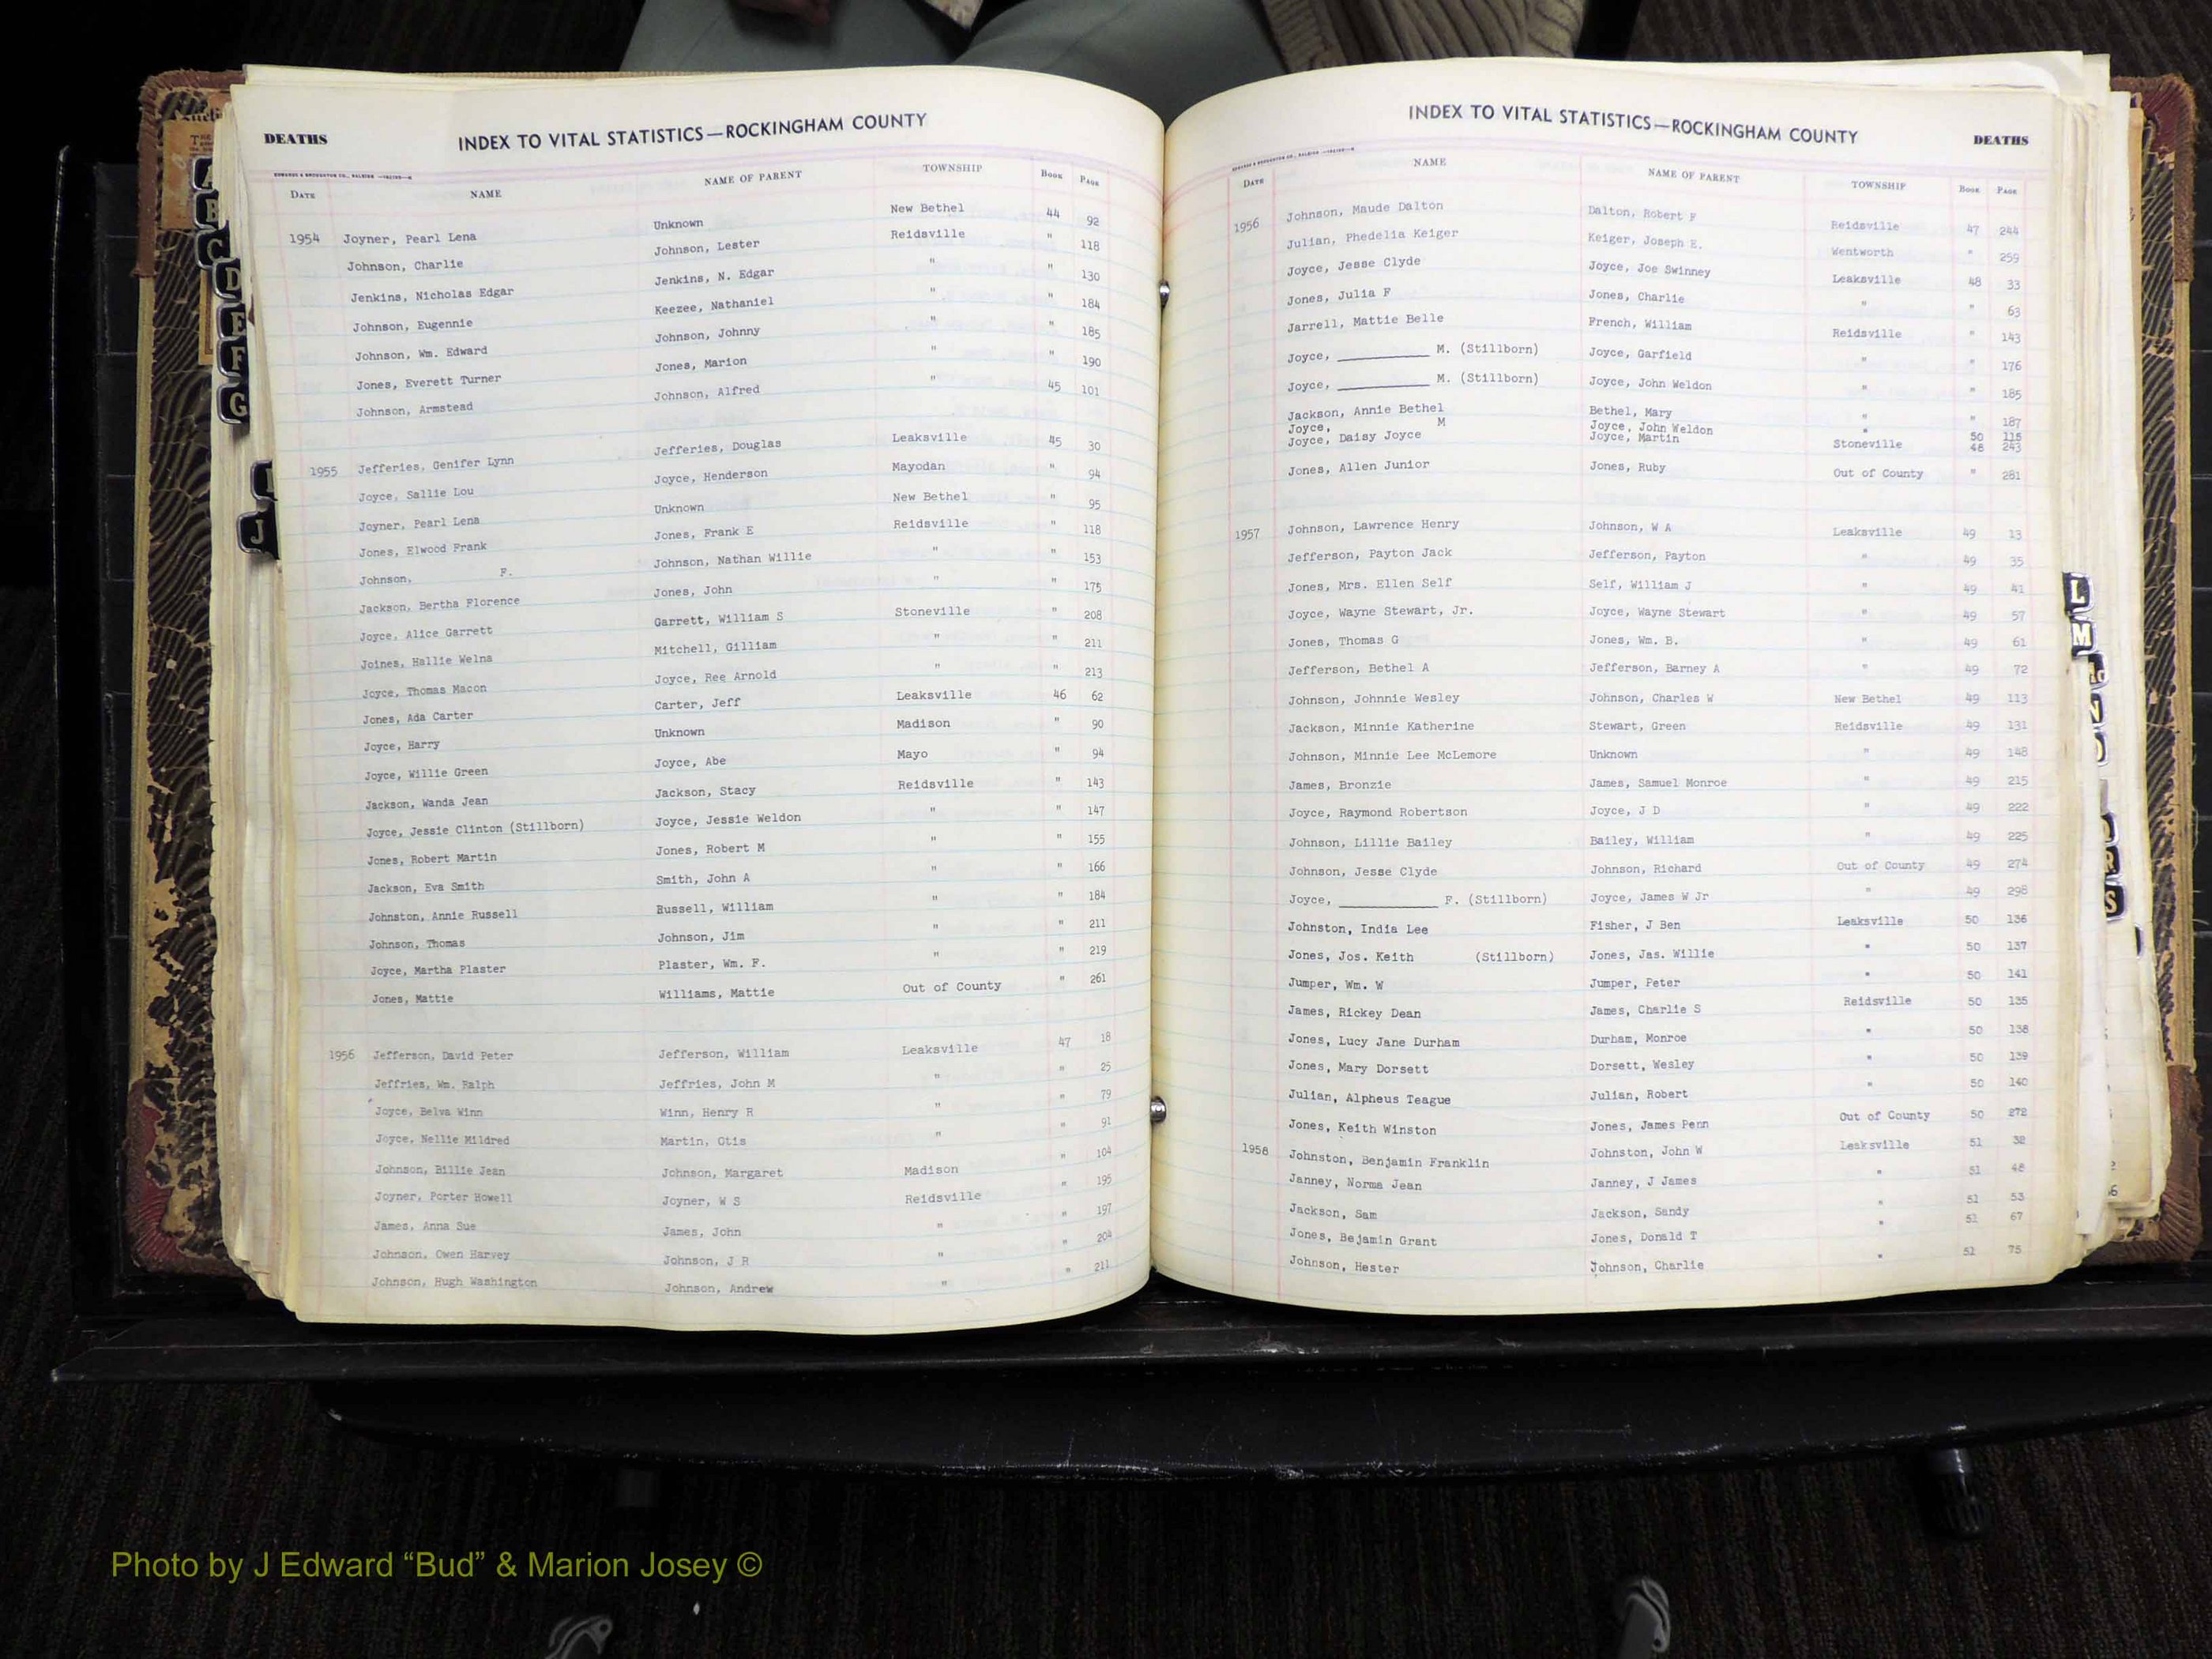 DEATHS INDEX TO VITAL STATISTICS—ROCKINGHAM COUNTY
DATE NAME NAME OF PARENT TOWNSHIP BOOK PAGE
1954 Joyner, Pearl Lena Unknown New Bethel 44 92
Johnson, Charlie Johnson, Lester Reidsville " 118
Jenkins, Nicholas Edgar Jenkins, N. Edgar " " 130
Johnson, Eugennie Keezee, Nathaniel " " 184
Johnson, Wm. Edward Johnson, Johnny " " 185
Jones, Everett Turner Jones, Marion " " 190
Johnson, Armstead Johnson, Alfred " 45 101
1955 Jefferies, Genifer Lynn Jefferies, Douglas Leaksville 45 30
Joyce, Sallie Lou Joyce, Henderson Mayodan " 94
Joyner, Pearl Lena Unknown New Bethel " 95
Jones, Elwood Frank Jones, Frank E Reidsville " 118
Johnson, F. Johnson, Nathan Willie " " 153
Jackson, Bertha Florence Jones, John " " 175
Joyce, Alice Garrett Garrett, William S Stoneville " 208
Joines, Hallie Welna Mitchell, Gilliam " " 211
Joyce, Thomas Macon Joyce, Ree Arnold " " 213
Jones, Ada Carter Carter, Jeff Leaksville 46 62
Joyce, Harry Unknown Madison " 90
Joyce, Willie Green Joyce, Abe Mayo " 94
Jackson, Wanda Jean Jackson, Stacy Reidsville " 143
Joyce, Jessie Clinton (Stillborn) Joyce, Jessie Weldon " " 147
Jones, Robert Martin Jones, Robert M " " 155
Jackson, Eva Smith Smith, John A " " 166
Johnston, Annie Russell Russell, William " " 184
Johnson, Thomas Johnson, Jim " " 211
Joyce, Martha Plaster Plaster, Wm. F. " " 219
Jones, Mattie Williams, Mattie Out of County " 261
1956 Jefferson, David Peter Jefferson, William Leaksville 47 18
Jeffries, Wm. Ralph Jeffries, John M " " 25
Joyce, Belva Winn Winn, Henry R " " 79
Joyce, Nellie Mildred Martin, Otis " " 91
Johnson, Billie Jean Johnson, Margaret Madison " 104
Joyner, Porter Howell Joyner, W S Reidsville " 195
James, Anna Sue James, John " " 197
Johnson, Owen Harvey Johnson, J R " " 204
Johnson, Hugh Washington Johnson, Andrew " " 211
INDEX TO VITAL STATISTICS—ROCKINGHAM COUNTY DEATHS
DATE NAME NAME OF PARENT TOWNSHIP BOOK PAGE
1956 Johnson, Maude Dalton Dalton, Robert F Reidsville 47 244
Julian, Phedelia Keiger Keiger, Joseph E. Wentworth " 259
Joyce, Jesse Clyde Joyce, Joe Swinney Leaksville 48 33
Jones, Julia F Jones, Charlie " " 63
Jarrell, Mattie Belle French, William Reidsville " 143
Joyce, __________ M. (Stillborn) Joyce, Garfield " " 176
Joyce, __________ M. (Stillborn) Joyce, John Weldon " " 185
Jackson, Annie Bethel Bethel, Mary " " 187
Joyce, M Joyce, John Weldon " 50 115
Joyce, Daisy Joyce Joyce, Martin Stoneville 48 243
Jones, Allen Junior Jones, Ruby Out of County " 281
1957 Johnson, Lawrence Henry Johnson, W A Leaksville 49 13
Jefferson, Payton Jack Jefferson, Payton " 49 35
Jones, Mrs. Ellen Self Self, William J " 49 41
Joyce, Wayne Stewart, Jr. Joyce, Wayne Stewart " 49 57
Jones, Thomas G Jones, Wm. B. " 49 61
Jefferson, Bethel A Jefferson, Barney A " 49 72
Johnson, Johnnie Wesley Johnson, Charles W New Bethel 49 113
Jackson, Minnie Katherine Stewart, Green Reidsville 49 131
Johnson, Minnie Lee McLemore Unknown " 49 148
James, Bronzie James, Samuel Monroe " 49 215
Joyce, Raymond Robertson Joyce, J D " 49 222
Johnson, Lillie Bailey Bailey, William " 49 225
Johnson, Jesse Clyde Johnson, Richard Out of County 49 274
Joyce, __________ F. (Stillborn) Joyce, James W Jr " 49 298
Johnston, India Lee Fisher, J Ben Leaksville 50 136
Jones, Jos. Keith (Stillborn) Jones, Jas. Willie " 50 137
Jumper, Wm. W Jumper, Peter " 50 141
James, Rickey Dean James, Charlie S Reidsville 50 135
Jones, Lucy Jane Durham Durham, Monroe " 50 138
Jones, Mary Dorsett Dorsett, Wesley " 50 139
Julian, Alpheus Teague Julian, Robert " 50 140
Jones, Keith Winston Jones, James Penn Out of County 50 272
1958 Johnston, Benjamin Franklin Johnston, John W Leaksville 51 32
Janney, Norma Jean Janney, J James " 51 48
Jackson, Sam Jackson, Sandy " 51 53
Jones, Bejamin Grant Jones, Donald T " 51 67
Johnson, Hester Johnson, Charlie " 51 75
A
B
C
D
E
F
G
J
L
M
N
R
S
Photo by J Edward “Bud” & Marion Josey ©